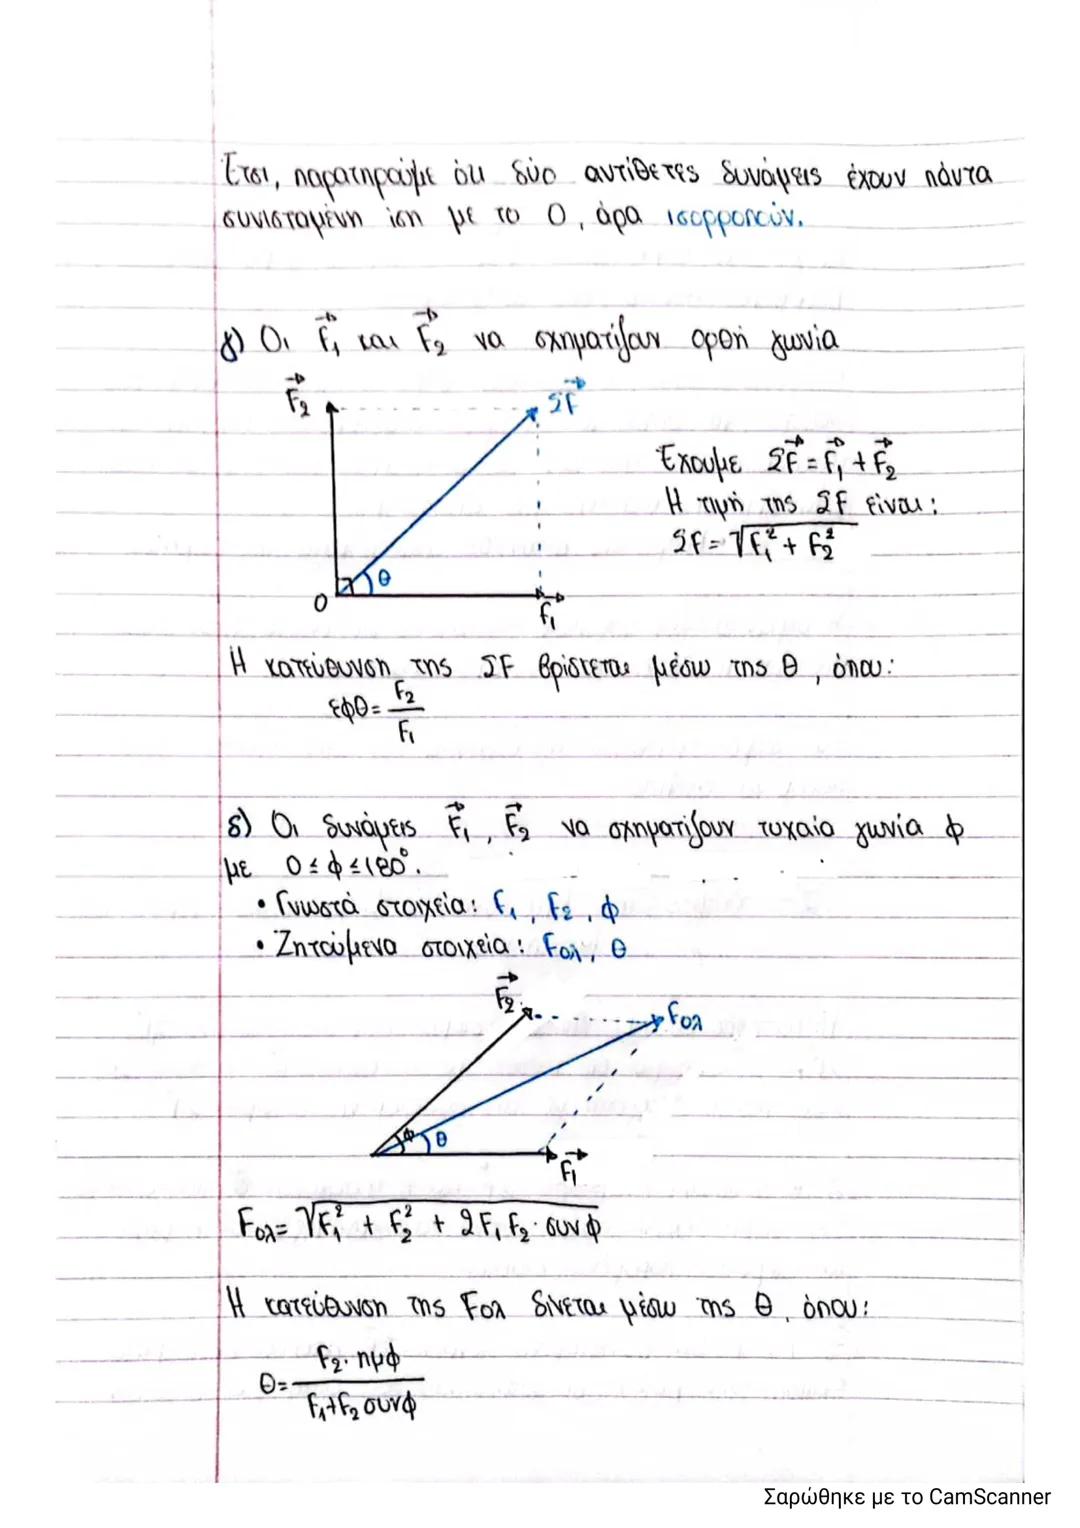 Έτσι, παρατηρούμε ότι δύο αντίθετες δυνάμεις έχουν πάντα
συνισταμένη ίση με το 0, άρα ισορροπούν.
γ) Οι F₁ και F₂ να σχηματίζουν ορθή γωνία
F₂
ΣF
Έχουμε ΣF = F₁ + F₂
Η τιμή της ΣF είναι:
ΣF = √F₁² + F₂²
θ
Ο
F₁
Η κατεύθυνση της ΣF βρίσκεται μέσω της θ, όπου:
εφθ = F₂/F₁
δ) Οι δυνάμεις F₁, F₂ να σχηματίζουν τυχαία γωνία φ
με 0 ≤ φ ≤ 180°.
• Γνωστά στοιχεία: F₁, F₂, φ
• Ζητούμενα στοιχεία: Fολ, θ
F₂
Fολ
φ θ
F₁
Fολ = √F₁² + F₂² + 2F₁F₂·συνφ
Η κατεύθυνση της Fολ δίνεται μέσω της θ, όπου:
θ = F₂·ημφ/F₁+F₂συνφ
Σαρώθηκε με το CamScanner